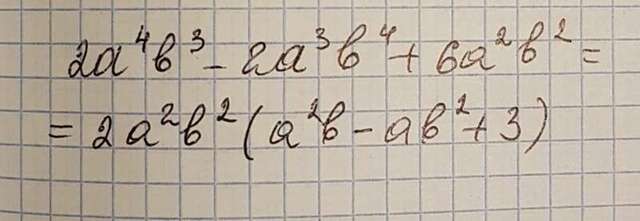 2a⁴b³ - 2a³b⁴ + 6a²b² =
= 2a²b²(a²b - ab² + 3)